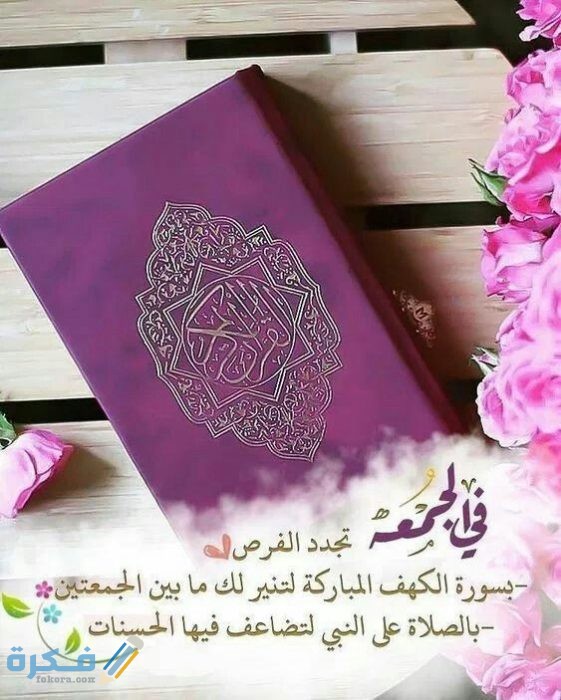 القرآن الكريم
في الجمعه
تجدد الفرص
-بسورة الكهف المباركة لتنير لك ما بين الجمعتين
-بالصلاة على النبي لتضاعف فيها الحسنات
فكرة
fekera.com